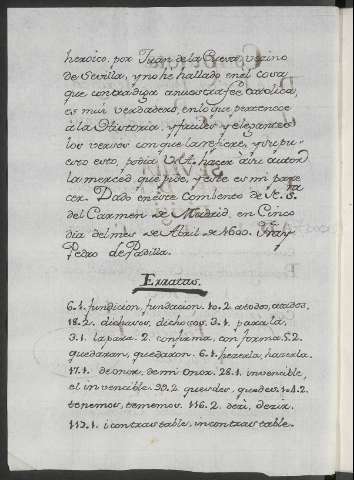 heroico, por Juan de la Cueva, vecino
de Sevilla, y no he hallado en èl cosa
que contradiga a nuestra feè catòlica,
es mui verdadero, en lo que pertenece
à la Historia, y faciles y elegantes
los versos con que la refiere, y su pu-
esto esto, podia V.A. hacer à su autor
la merced que pide, y este es mi pare
cer. Dado en este Combento de N.ra S.ra
del Carmen de Madrid, en Cinco
dia del mes de Abril de 1600. Fray
Pedro de Padilla.
Erratas.
6.1. fundicion, fundacion. 10.2. atodos, atados.
18.2. dichasos, dichosos. 3.1. para la.
3.1. lapara. 2. confirma, con forma. 5.2.
quedaran, quedaron. 6.1. hazerla, haserla.
17.1. de onor, de mi onor. 28.1. invencible,
el invencible. 99.2. querder, quedes. 104.2.
tenemos, tememos. 116.2. dezi, dezir.
115.1. i contrastable, incontrastable.